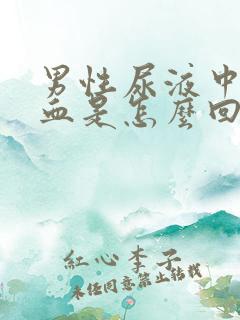 男性尿液中
血是怎麼回
紅心李子
未经同意禁止转载